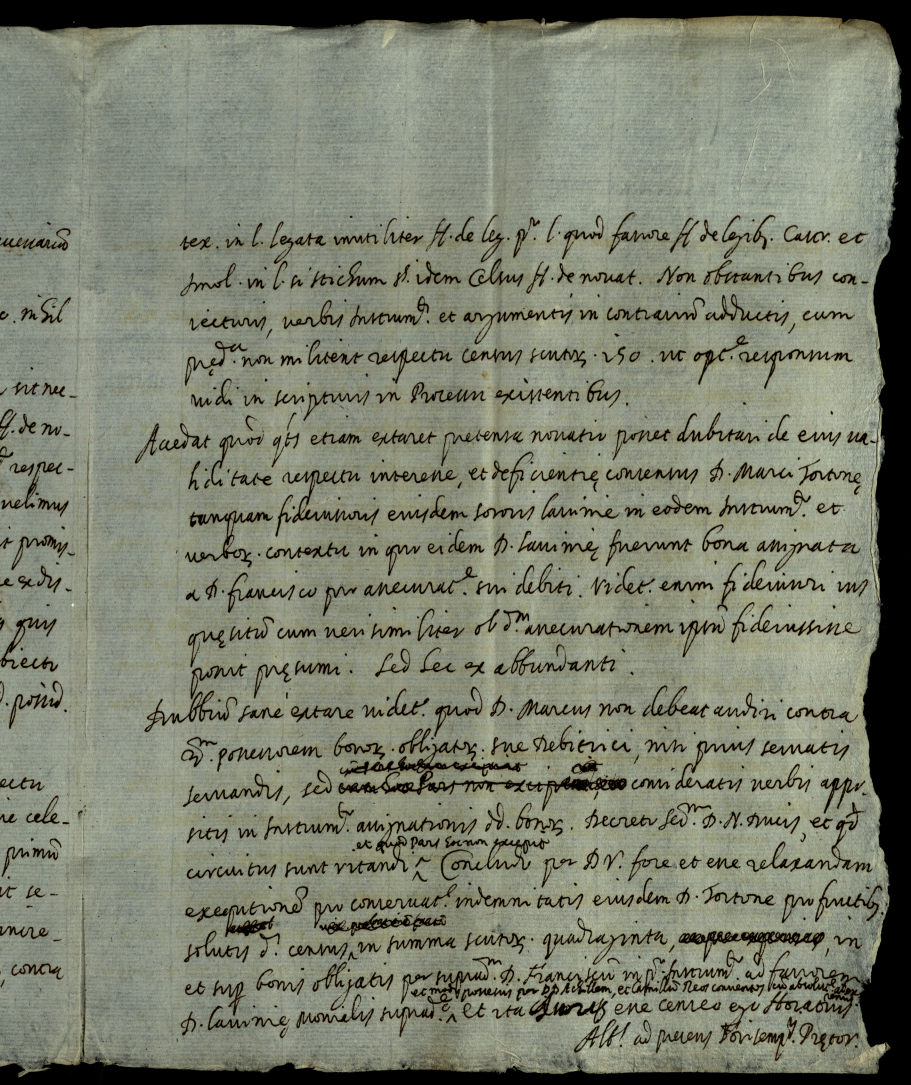 cuniariu
tex. in l. legata inutiliter ff. de leg. pº. l. quod favore ff de legib. Castr. et
o. nihil
Imol. in l. si stichum §. idem Celsus ff. de novat. Non obstantibus con-
iecturis, verbis Instrumti. et argumentis in contrarium adductis, cum
prędcta. non militent respectu census scutor. 150. ut optme. responsum
sit nec-
vidi in scripturis in Processu existentibus.
ff. de no-
Accedat quod qtus etiam extaret pretensa novatio posset dubitari de eius va-
respec-
liditate respectu interesse, et deficientię consensus D. Marci Tortonę
velimus
tanquam fideiussoris eiusdem sororis Lavinie in eodem Instrumto. et
t promis-
verbor. contextu in quo eidem D. Lavinię fuerunt bona assignata
e exdis-
a D. Francisco pro assecuratne. sui debiti. Videt. enim fideiussori ius
quis
quęsitum cum verisimiliter ob dm. assecurationem ipsum fideiussisse
biectu
possit pręsumi. Sed hec ex abbundanti.
d. possid.
Dubbium sane extare videt. quod D. Marcus non debeat audiri contra
possessorem bonor. obligator. sue debitrici, nisi prius servatis
ectu
servandis, sed consideratis verbis appo-
ie cele-
sitis in Instrumto. assignationis dd. bonor. Decreto Sermi. D. N. Ducis, et qd
et quod Pars hoc non excepit
primum
circuitus sunt vitandi ^ Concludo per D. V. fore et esse relaxandam
t se-
executionem pro conservatne. indemnitatis eiusdem D. Tortone pro fructib.
solutis di. census, in summa scutor. quadraginta, in
contra
et super bonis obligatis per supradm. D. Franciscum in po. Instrumto. ad favorem
D. Lavinię monialis suprad. ^ Et ita Iuris esse censeo ego Horatius
Albi. ad presens Forisemprii. Pretor.